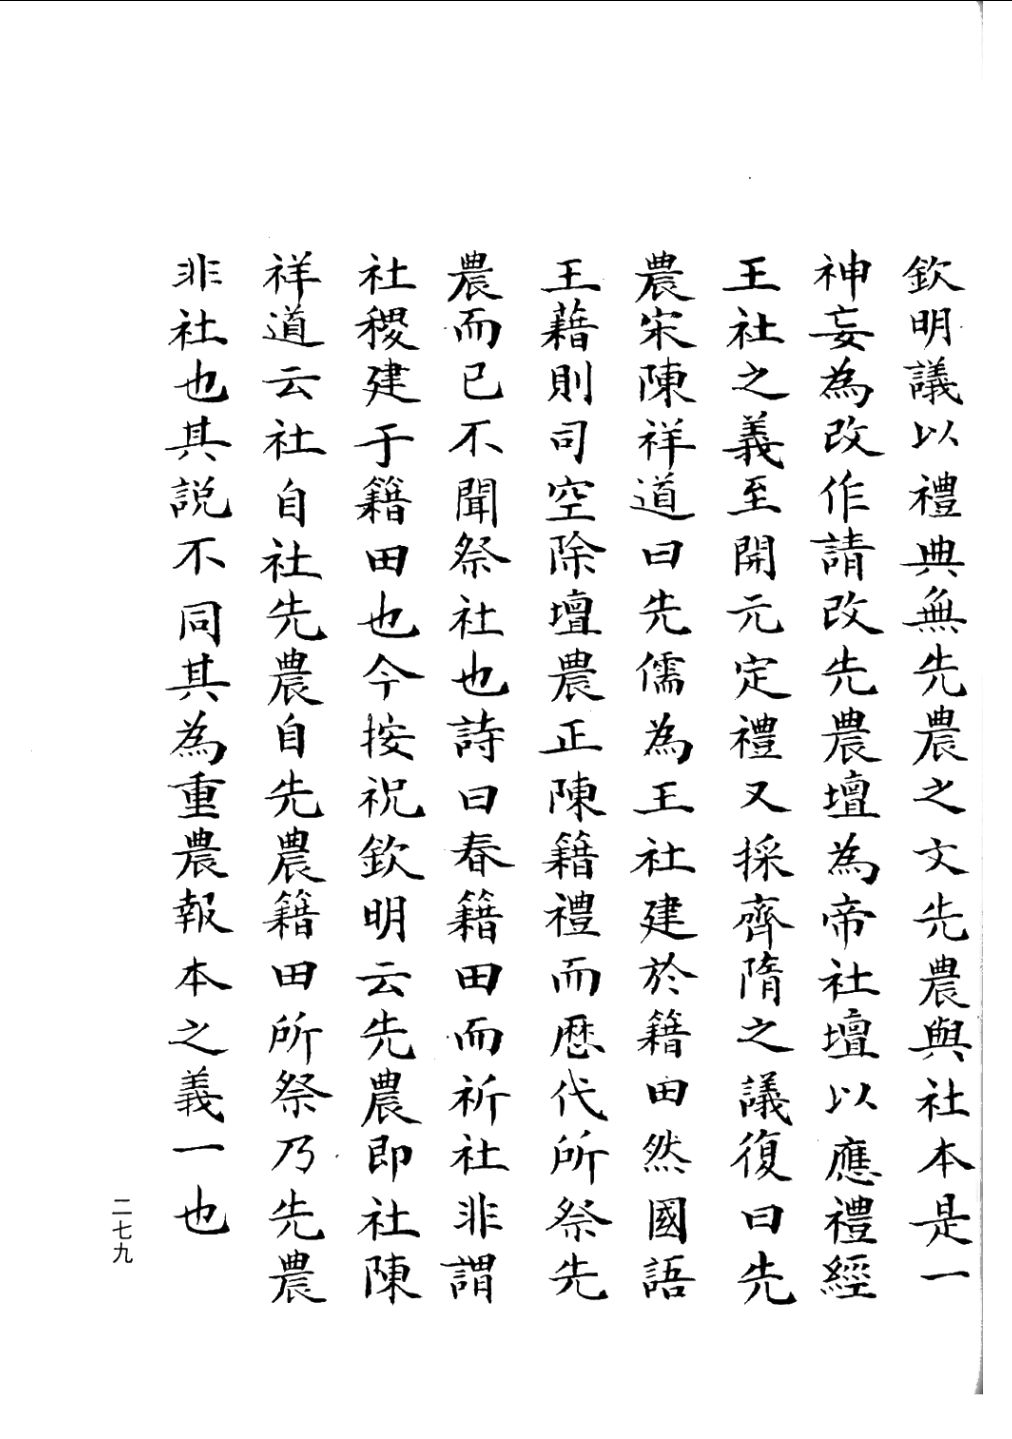 欽明議以禮典無先農之文先農與社本是一
神妄為改作請改先農壇為帝社壇以應禮經
王社之義至開元定禮又採齊隋之議復曰先
農宋陳祥道曰先儒為王社建於籍田然國語
王藉則司空除壇農正陳籍禮而歷代所祭先
農而已不聞祭社也詩曰春籍田而祈社非謂
社稷建于籍田也今按祝欽明云先農即社陳
祥道云社自社先農自先農籍田所祭乃先農
非社也其説不同其為重農報本之義一也
二七九